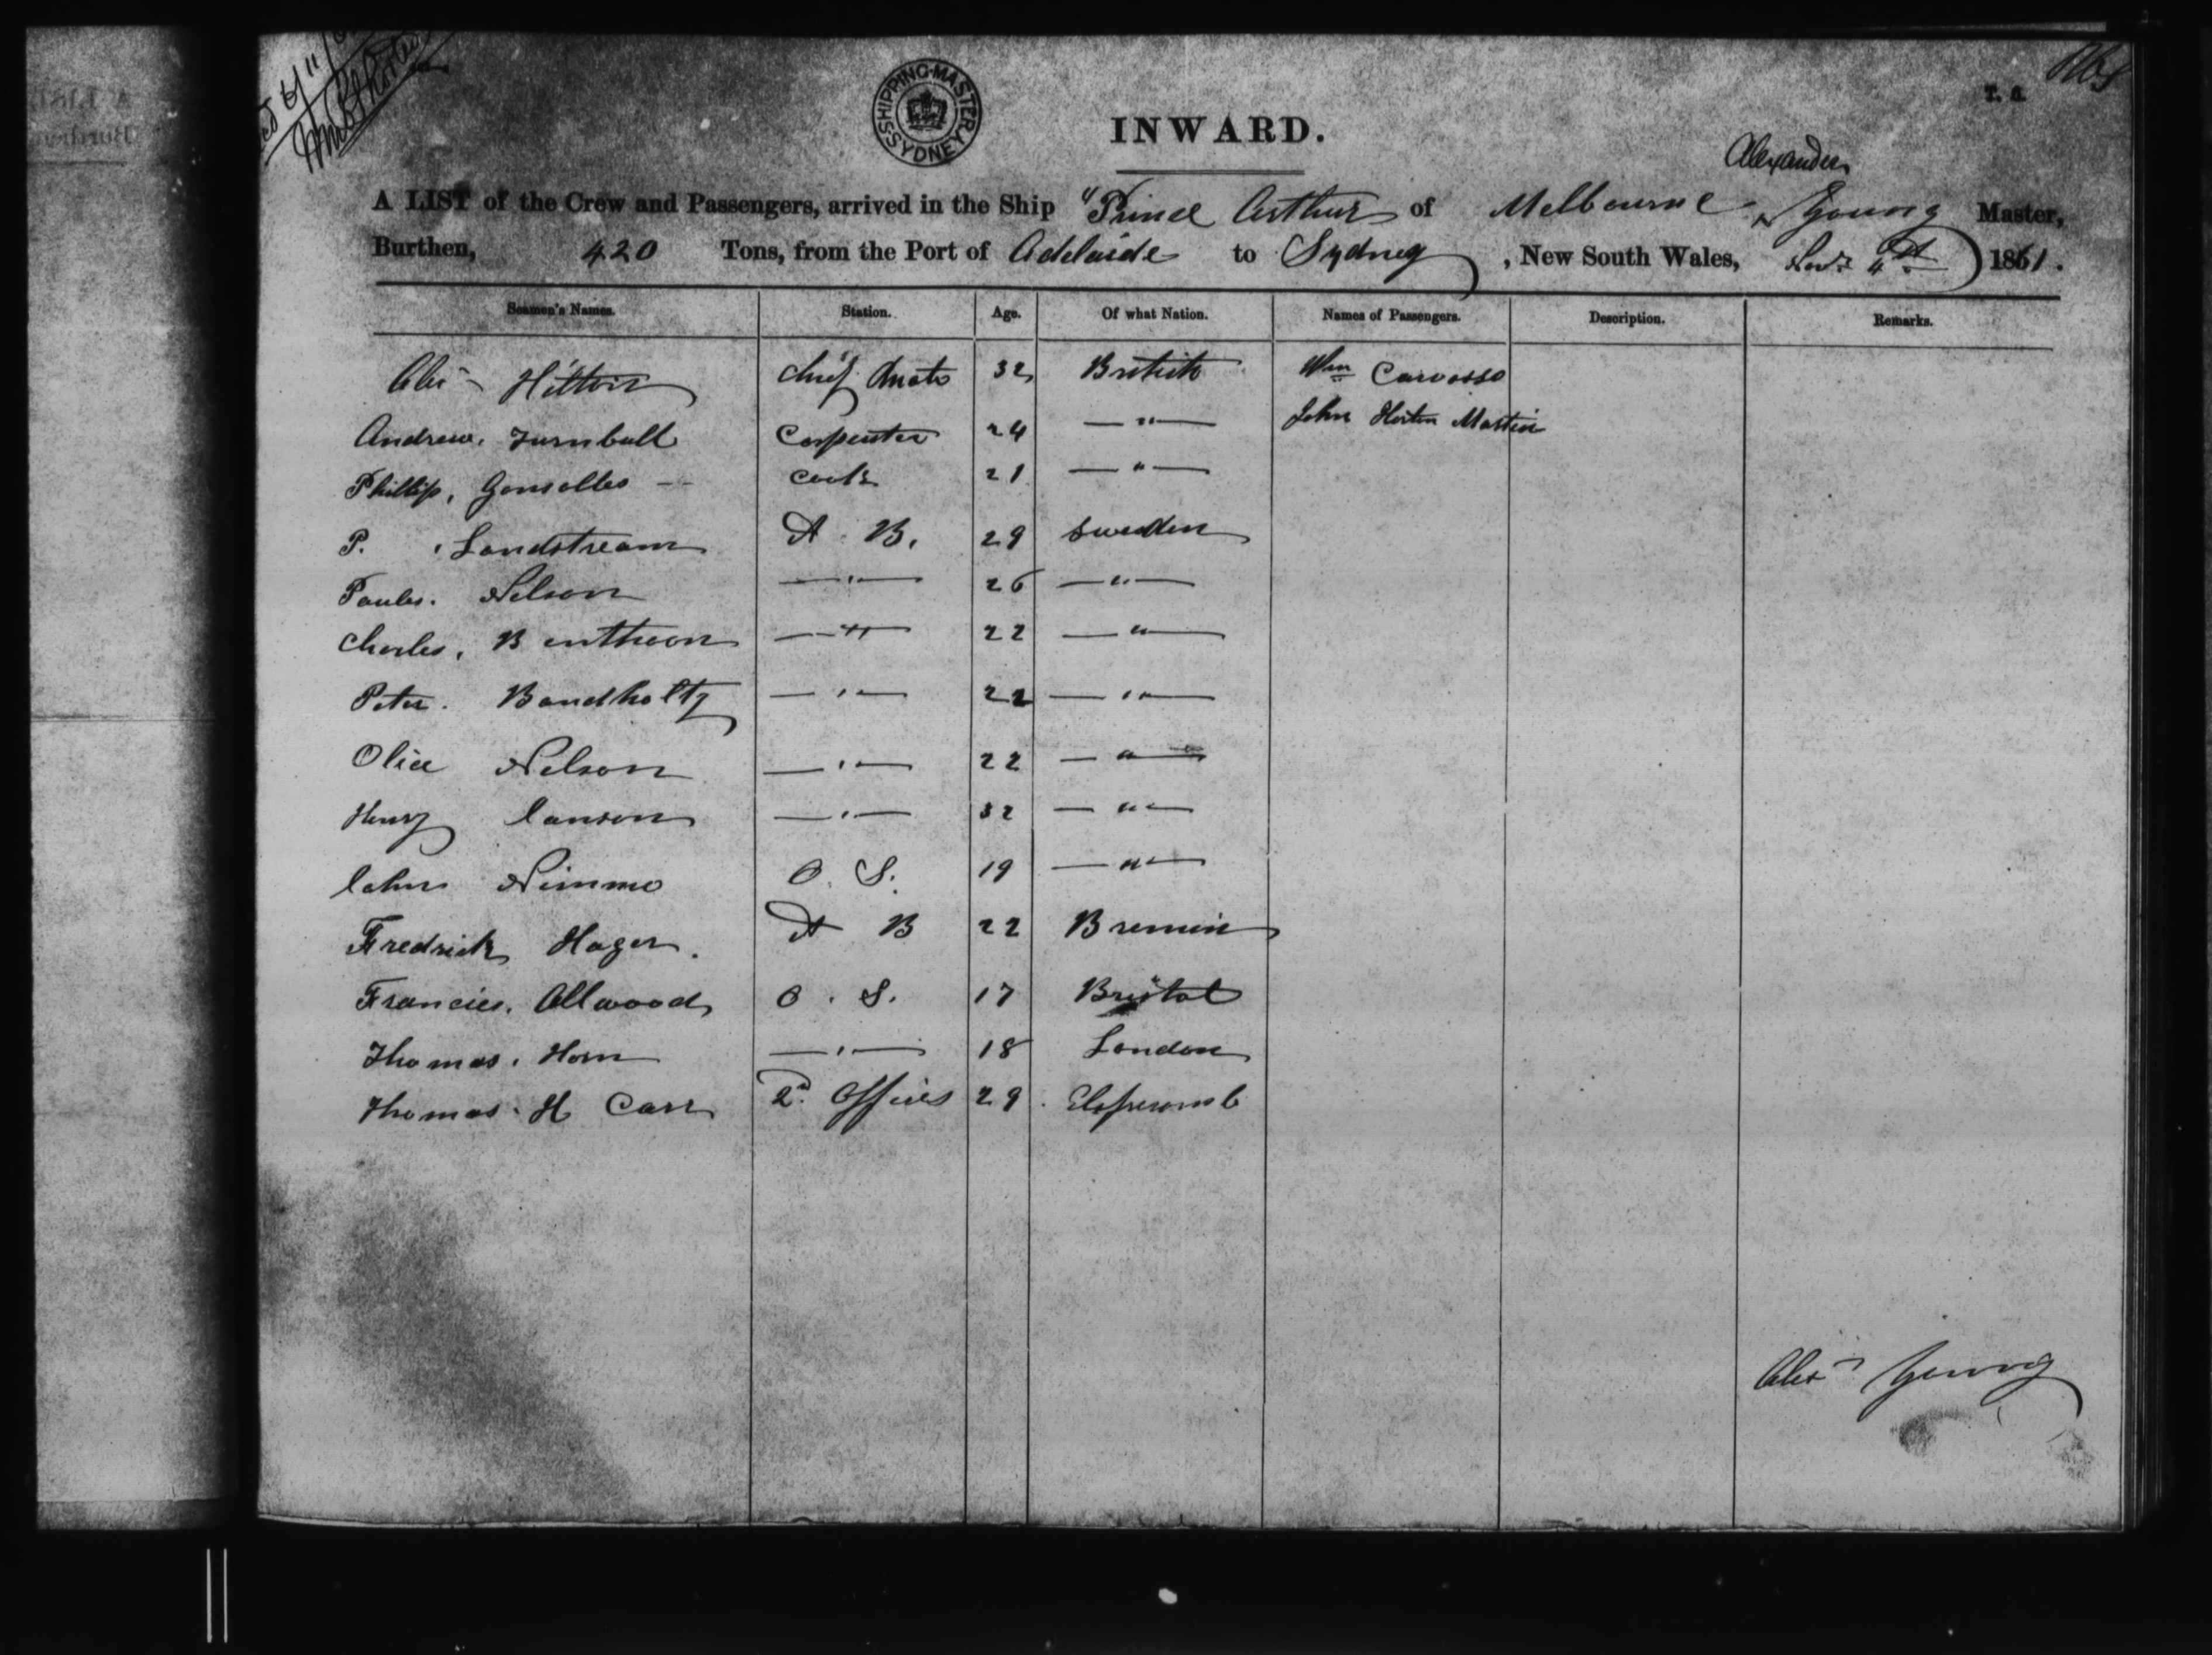 SHIPPING-MASTER. SYDNEY
INWARD.
T. G.
Alexander
A LIST of the Crew and Passengers, arrived in the Ship "Prince Arthur of Melbourne Young Master,
Burthen, 420 Tons, from the Port of Adelaide to Sydney, New South Wales, Novr 4th 1861.
Seamen's Names. Station. Age. Of what Nation. Names of Passengers. Description. Remarks.
Hilton Chief Mate 32 British Wm Carvosso
Andrew. Turnbull Carpenter 24 — " — John Horten Martin
Phillip, Gonsolles — Cook 21 — " —
P. Landstream A. B. 29 Sweden
Paules. Nelson — " — 26 — " —
Charles, Bentheon — " — 22 — " —
Peter. Bandholtz — " — 22 — " —
Olice Nelson — " — 22 — " —
Henry Janson — " — 32 — " —
John Nimmo O. S. 19 — " —
Fredrick Hager. A B 22 Bremin
Francies. Allwood O. S. 17 Bristol
Thomas. Horn — " — 18 London
Thomas. H Carr 2d Officer 29
Alexr Young